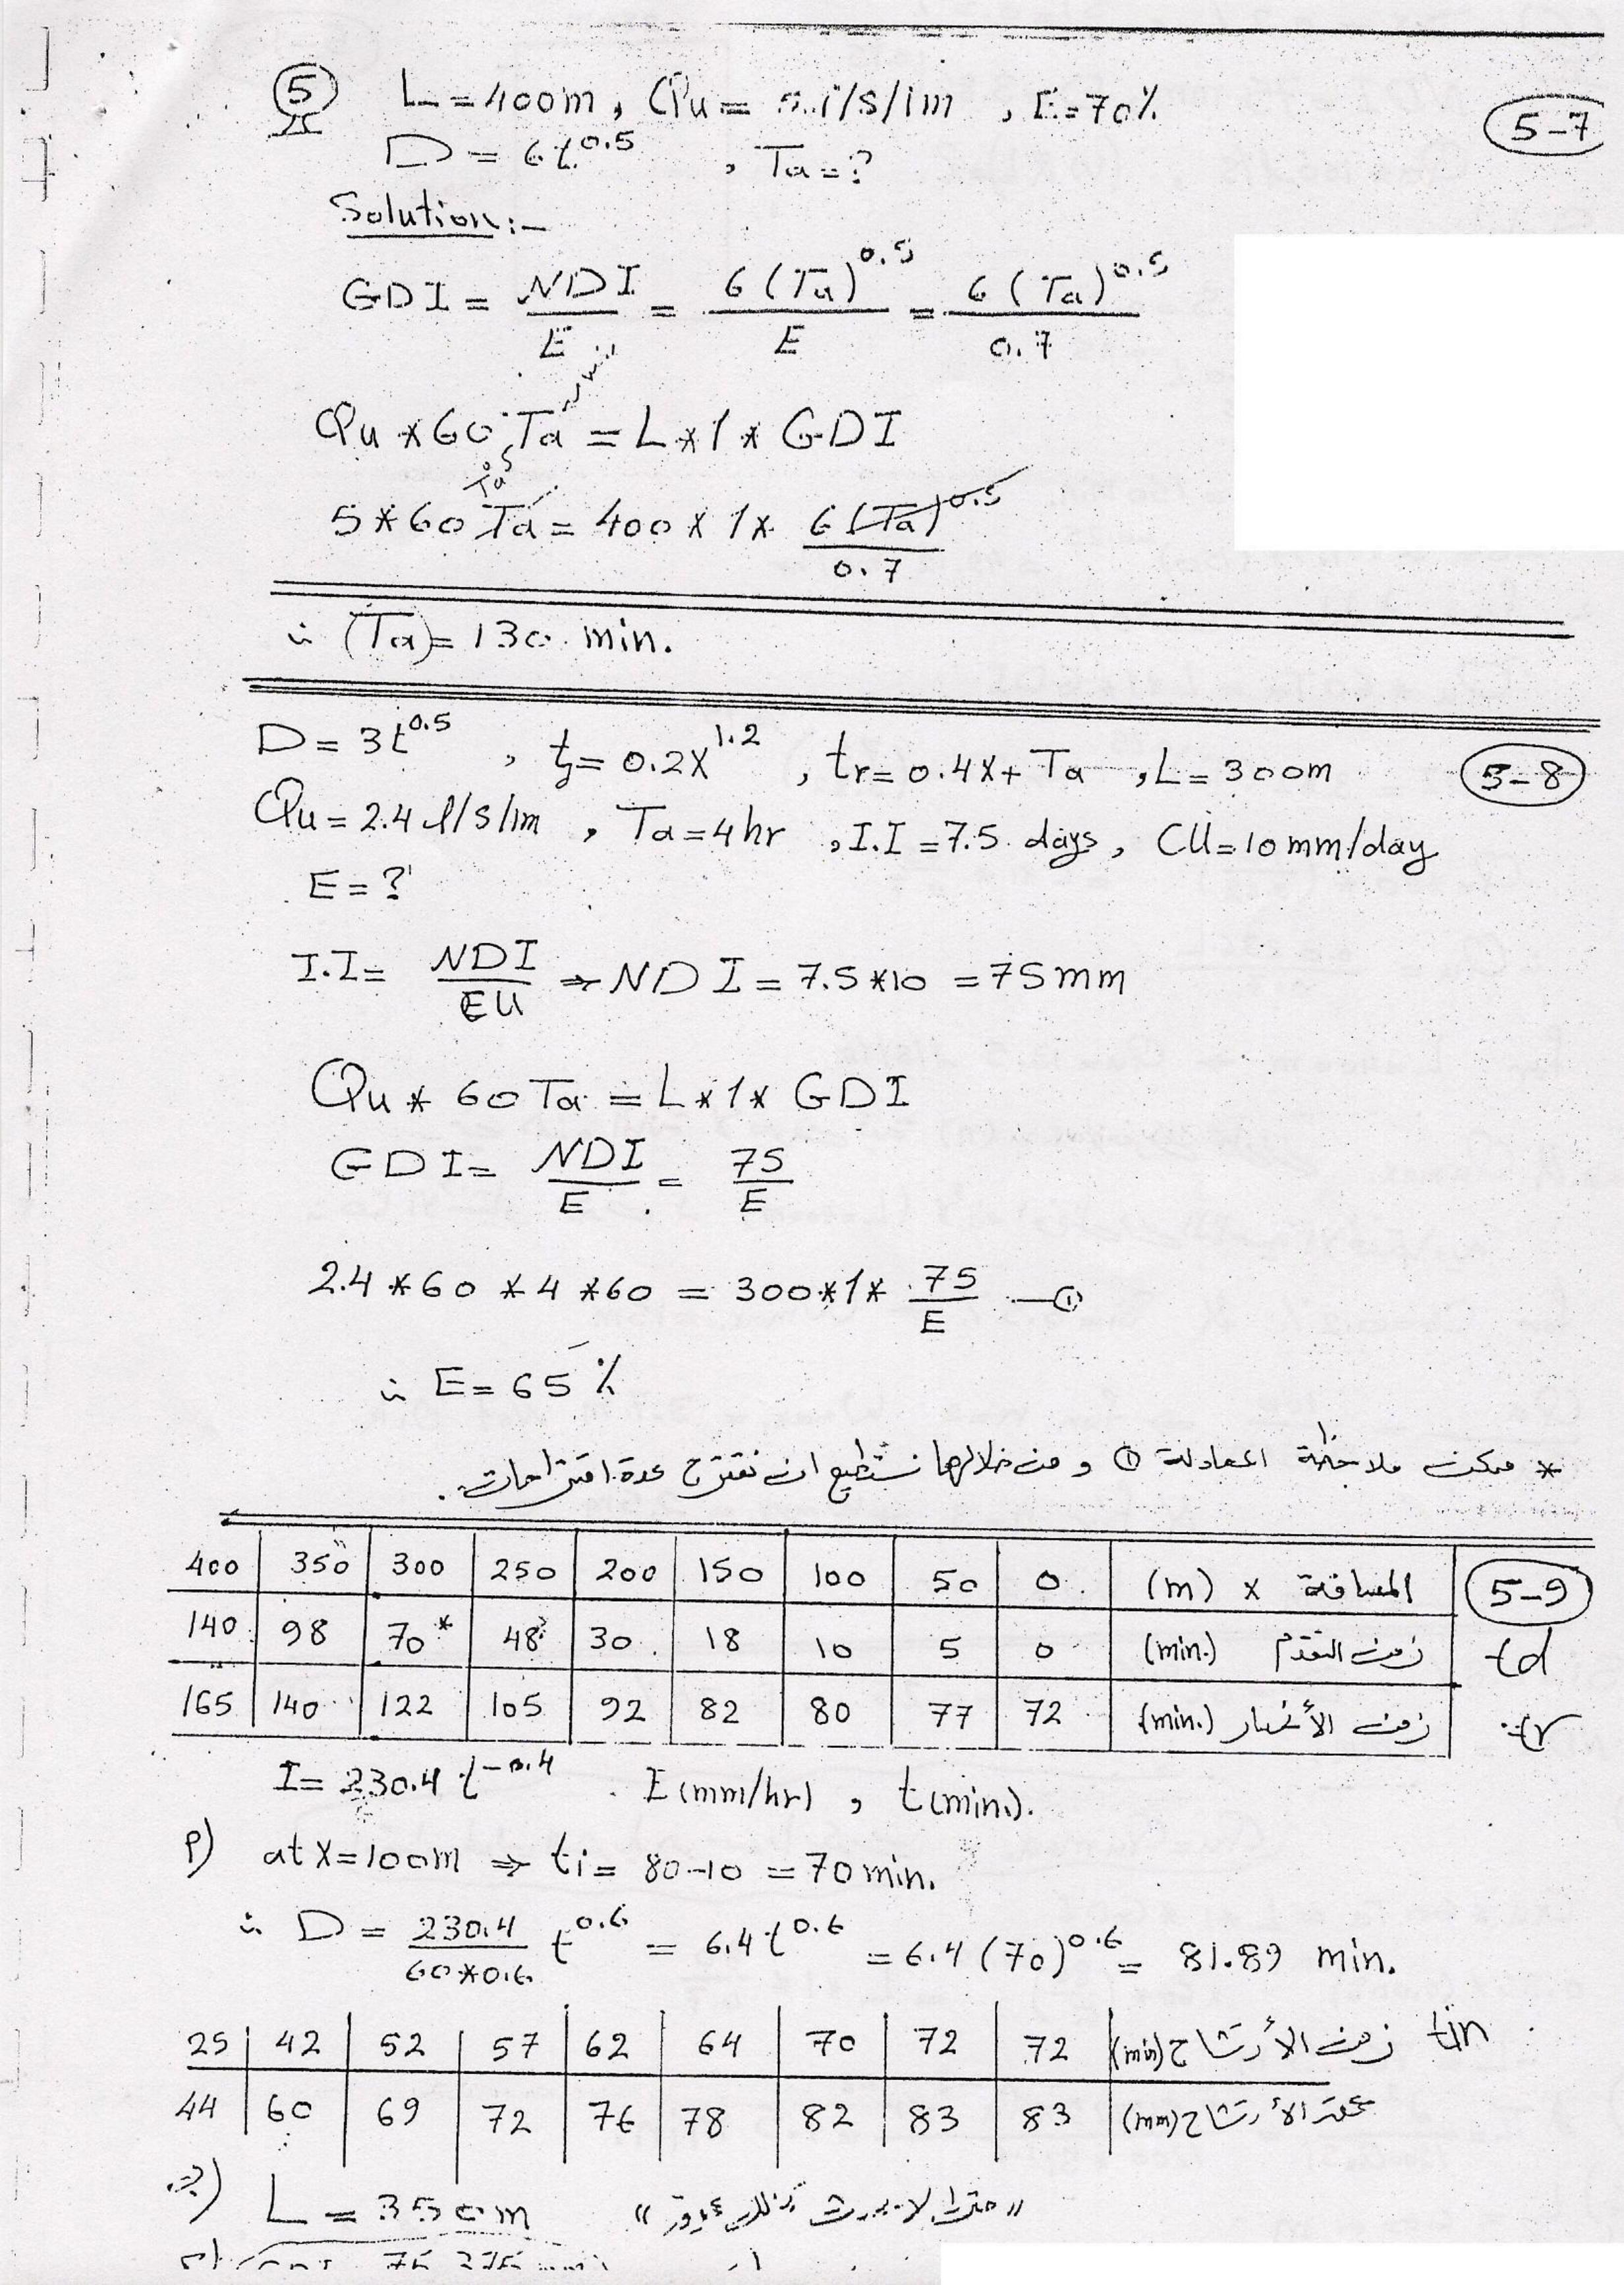 5 L=400m, Qu= 5 l/s/1m , E=70% 5-7
D = 6t^0.5 , Ta=?
Solution:-
GDI = NDI/E = 6(Ta)^0.5/E = 6(Ta)^0.5/0.7
Qu*60 Ta = L*1* GDI
Ta^0.5
5*60 Ta = 400*1* 6(Ta)^0.5/0.7
∴ (Ta)= 130 min.
D = 3t^0.5 , t = 0.2X^1.2 , tr= 0.4X+ Ta , L= 300m 5-8
Qu = 2.4 l/s/1m , Ta=4hr , I.I =7.5 days, CU=10mm/day
E=?
I.I= NDI/EU ⇒ NDI = 7.5*10 = 75mm
Qu* 60Ta = L*1* GDI
GDI= NDI/E = 75/E
2.4*60*4*60 = 300*1* 75/E —①
∴ E= 65 %
* ممكن ملاحظة المعادلة ① و من خلالها نستطيع ان نقترح عدة اقتراحات.
400 350 300 250 200 150 100 50 0 (m) x المسافة 5-9
140 98 70* 48 30 18 10 5 0 (min.) زمن التقدم td
165 140 122 105 92 82 80 77 72 (min.) زمن الأنحسار tr
I= 230.4 t^-0.4 I(mm/hr) , t(min.).
P) at X=100m ⇒ ti= 80-10 = 70min.
∴ D = 230.4/60*0.6 t^0.6 = 6.4 t^0.6 = 6.4 (70)^0.6 = 81.89 min.
25 42 52 57 62 64 70 72 72 (min) زمن الأرتشاح tin
44 60 69 72 76 78 82 83 83 (mm) عمق الأرتشاح
L = 350m